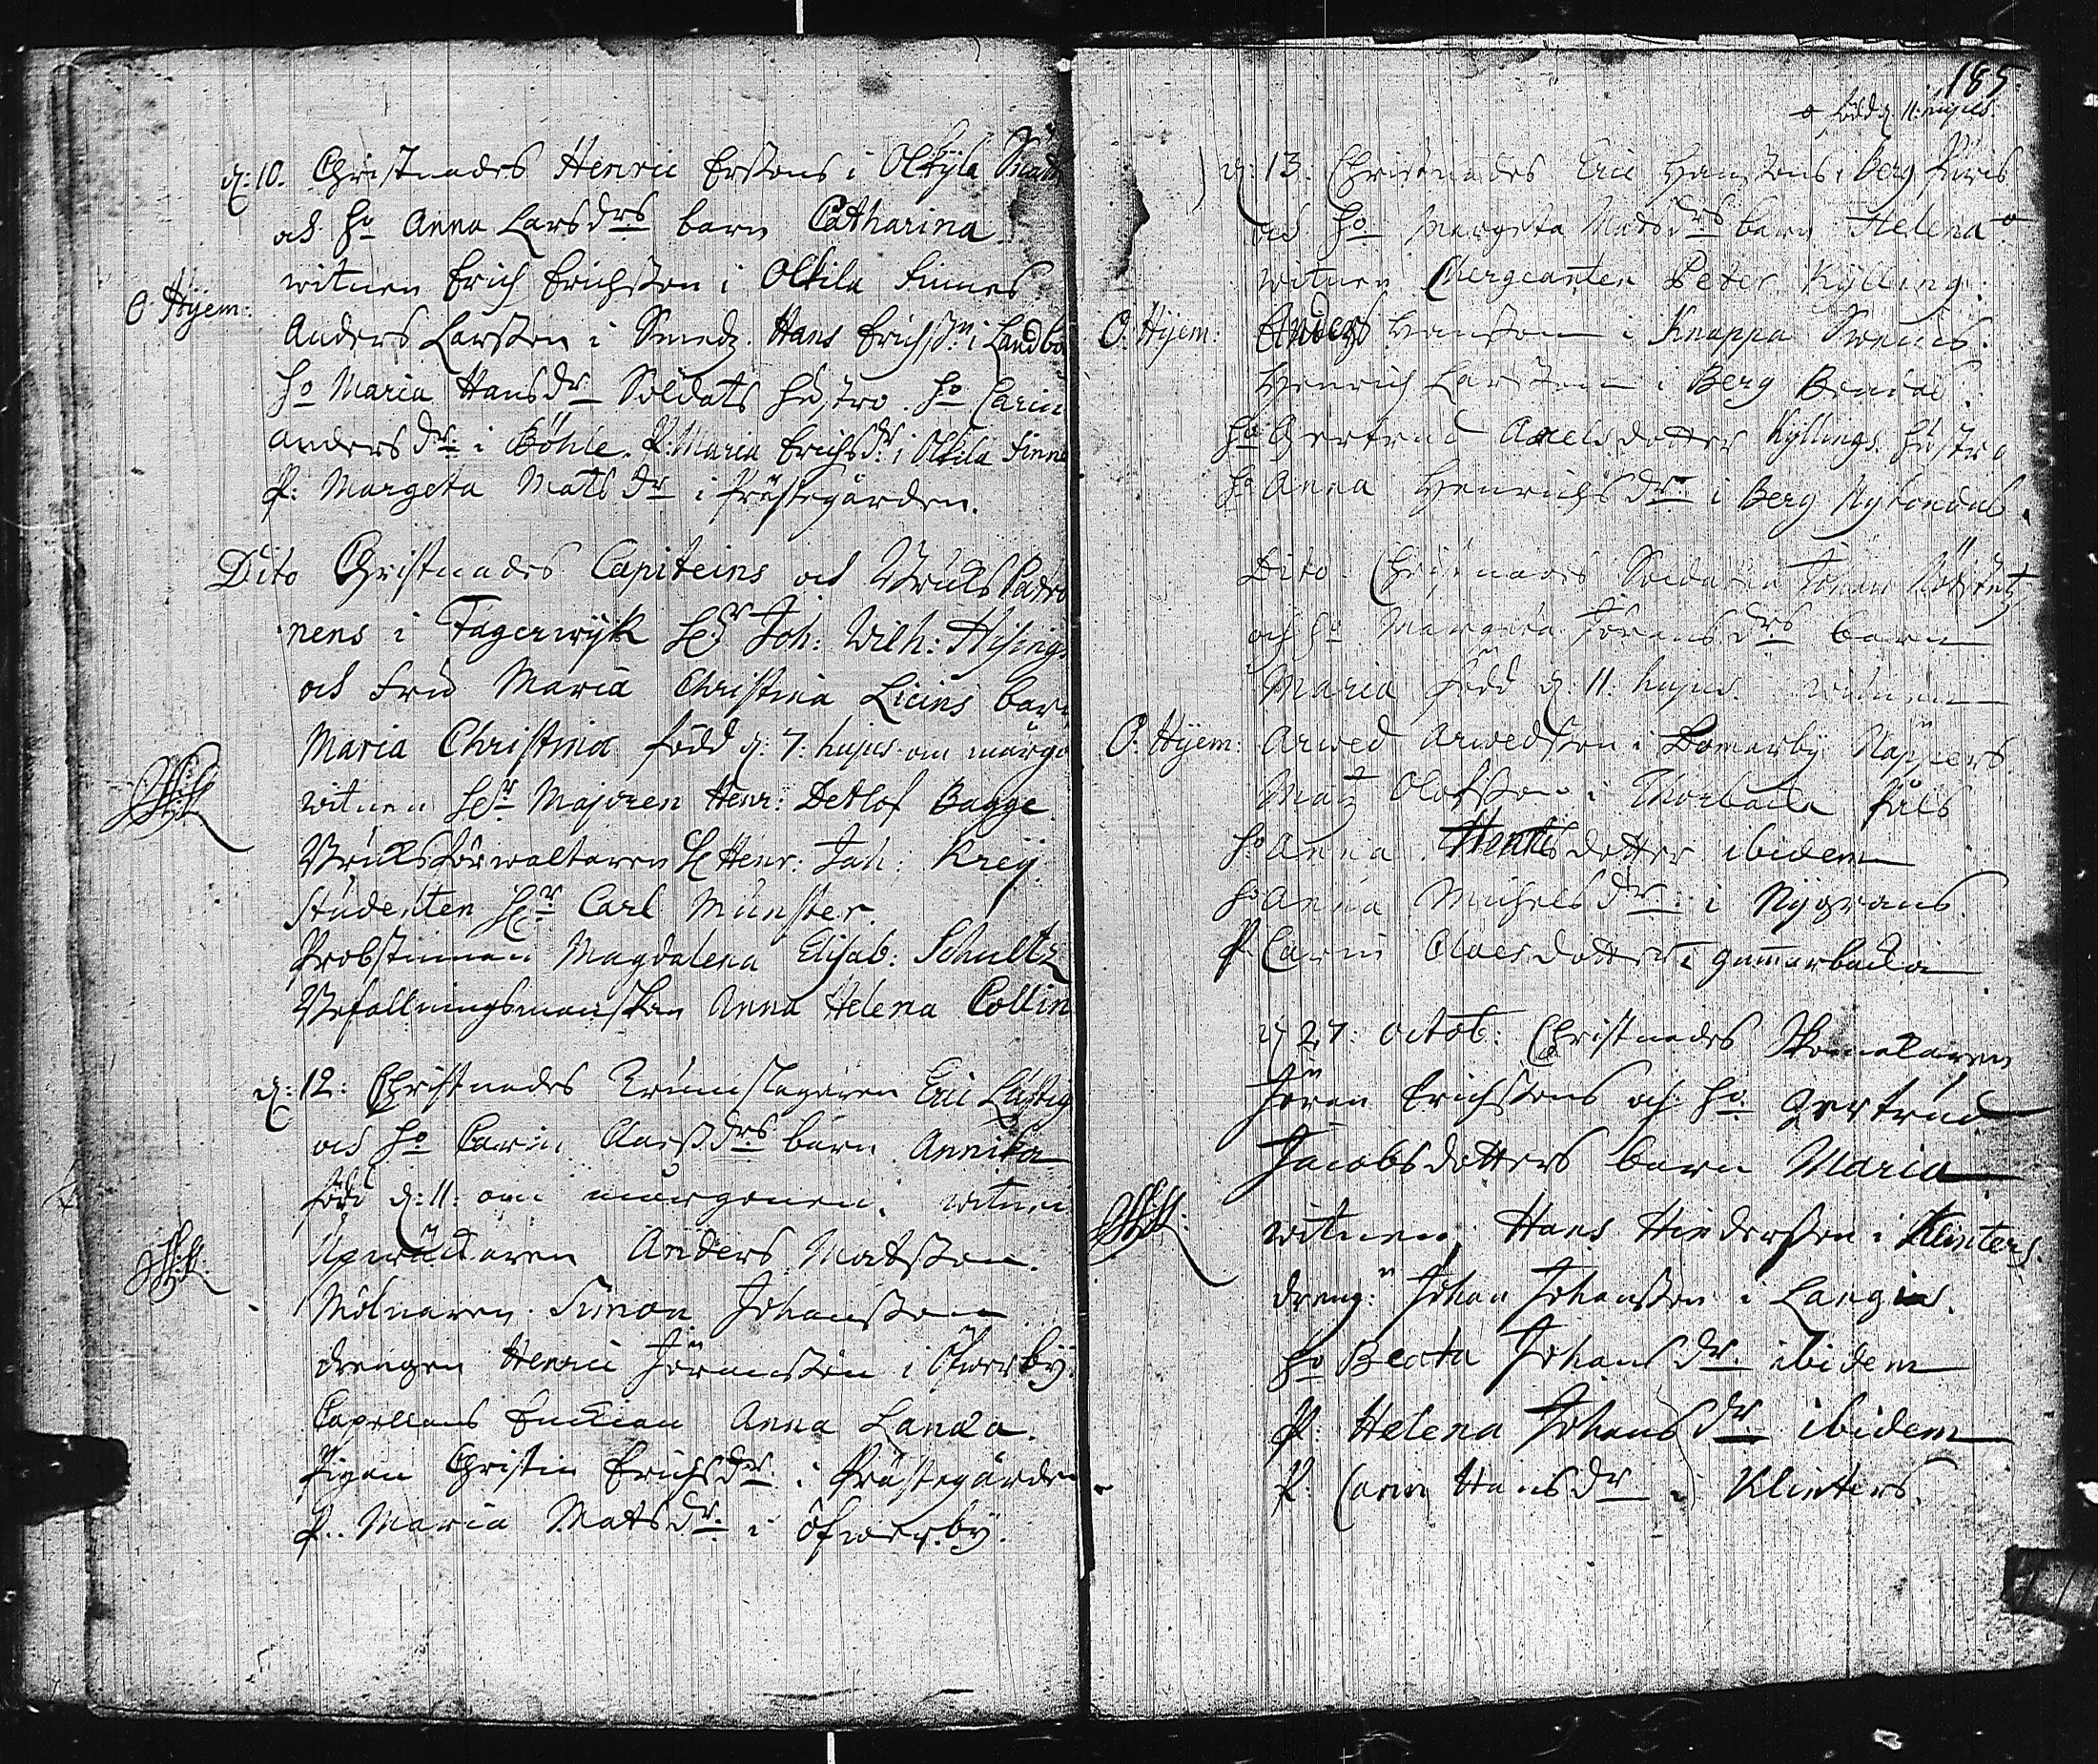 d: 10. Christnades Henric Ersons i Olkyla Smeds
och ho Anna Larsdrs barn Catharina.
witnen Erich Erichsson i Olkila Finnes
O. Hyem:
Anders Larsson i Smedz. Hans Erichsn i Landbo
ho Maria Hansdr Soldats hustro. ho Carin
Andersdr i Böhle. P: Maria Erichsdr i Olkila Finne
P: Margeta Matsdr i Prästegården.
Dito Christnades Capiteins och BruksPatro
nens i Fagerwijk Hr Joh: Wilh: Hisings
och Fru Maria Christina Licius barn
Maria Christina född d: 7: hujus om mårgo
witnen Hr Majoren Henr: Detlof Bagge
Bruksförwaltaren H Henr: Joh: Kreij.
Studenten Hr Carl Münster.
Probstinnan Magdalena Elisab: Schultz
Befallningsmanskan Anna Helena Collin
d: 12: Christnades Trumslagaren Eric Lustig
och ho Carin Clarssdrs barn Annika
född d: 11: om morgonen. witnen
Anders Matsson.
Mölnaren Simon Johansson
drengen Henric Jöransson i Öfwerby.
Capellans Enckian Anna Landa.
Pigan Christin Erichsdr i Prästegården
P: Maria Matsdr i Öfwerby.
185.
född d. 11. hujus.
d: 13: Christnades Eric Hanssons i Berg
och ho Margeta Matsdrs barn Helena
witnen Chergeanten Peter Kylling.
O. Hyem: Anders Hansson i Knappa Swens.
Henrich Larsson i Berg
ho Gertrud Axelsdotter Kyllings hustro
ho Anna Henrichsdr i Berg
Dito Christnades Soldaten Johan
och ho Margeta Jöransdrs barn
Maria född d: 11: hujus witnen
O. Hyem: Arwed Arwedsson i Domarby
Matz Olofsson i Thorbacka Påls
ho Anna dotter ibidem
ho Anna Michelsdr i Nygrans.
P. Carin Claesdotter i Gumarbacka
d 27: Octob: Christnades Skomakaren
Jöran Erichssons och ho Gertrud
Jacobsdotters barn Maria
witnen, Hans Hindersson i Klinters.
dreng: Johan Johansson i Langans.
ho Beata Johansdr. ibidem
P. Helena Johansdr ibidem
P. Carin Hansdr i Klinters.